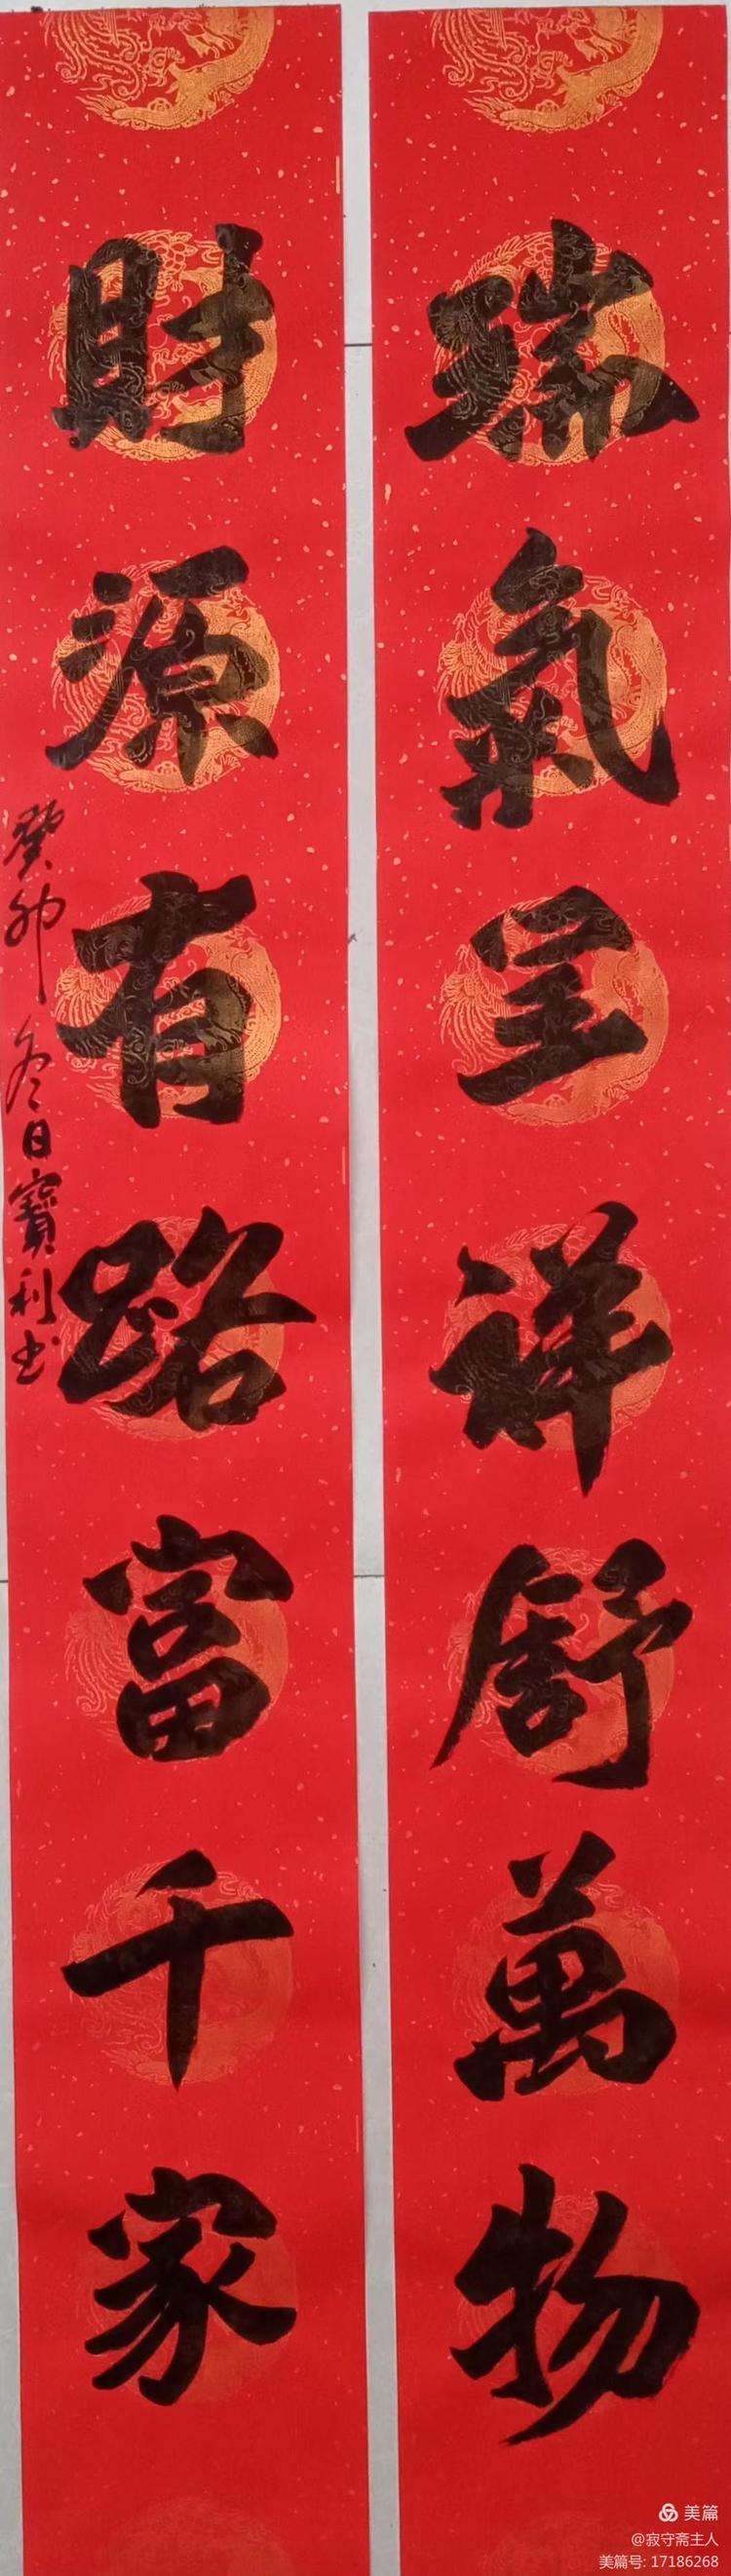 瑞氣呈祥舒萬物
財源有路富千家
癸卯冬日寶利书
美篇
@寂守斋主人
美篇号: 17186268